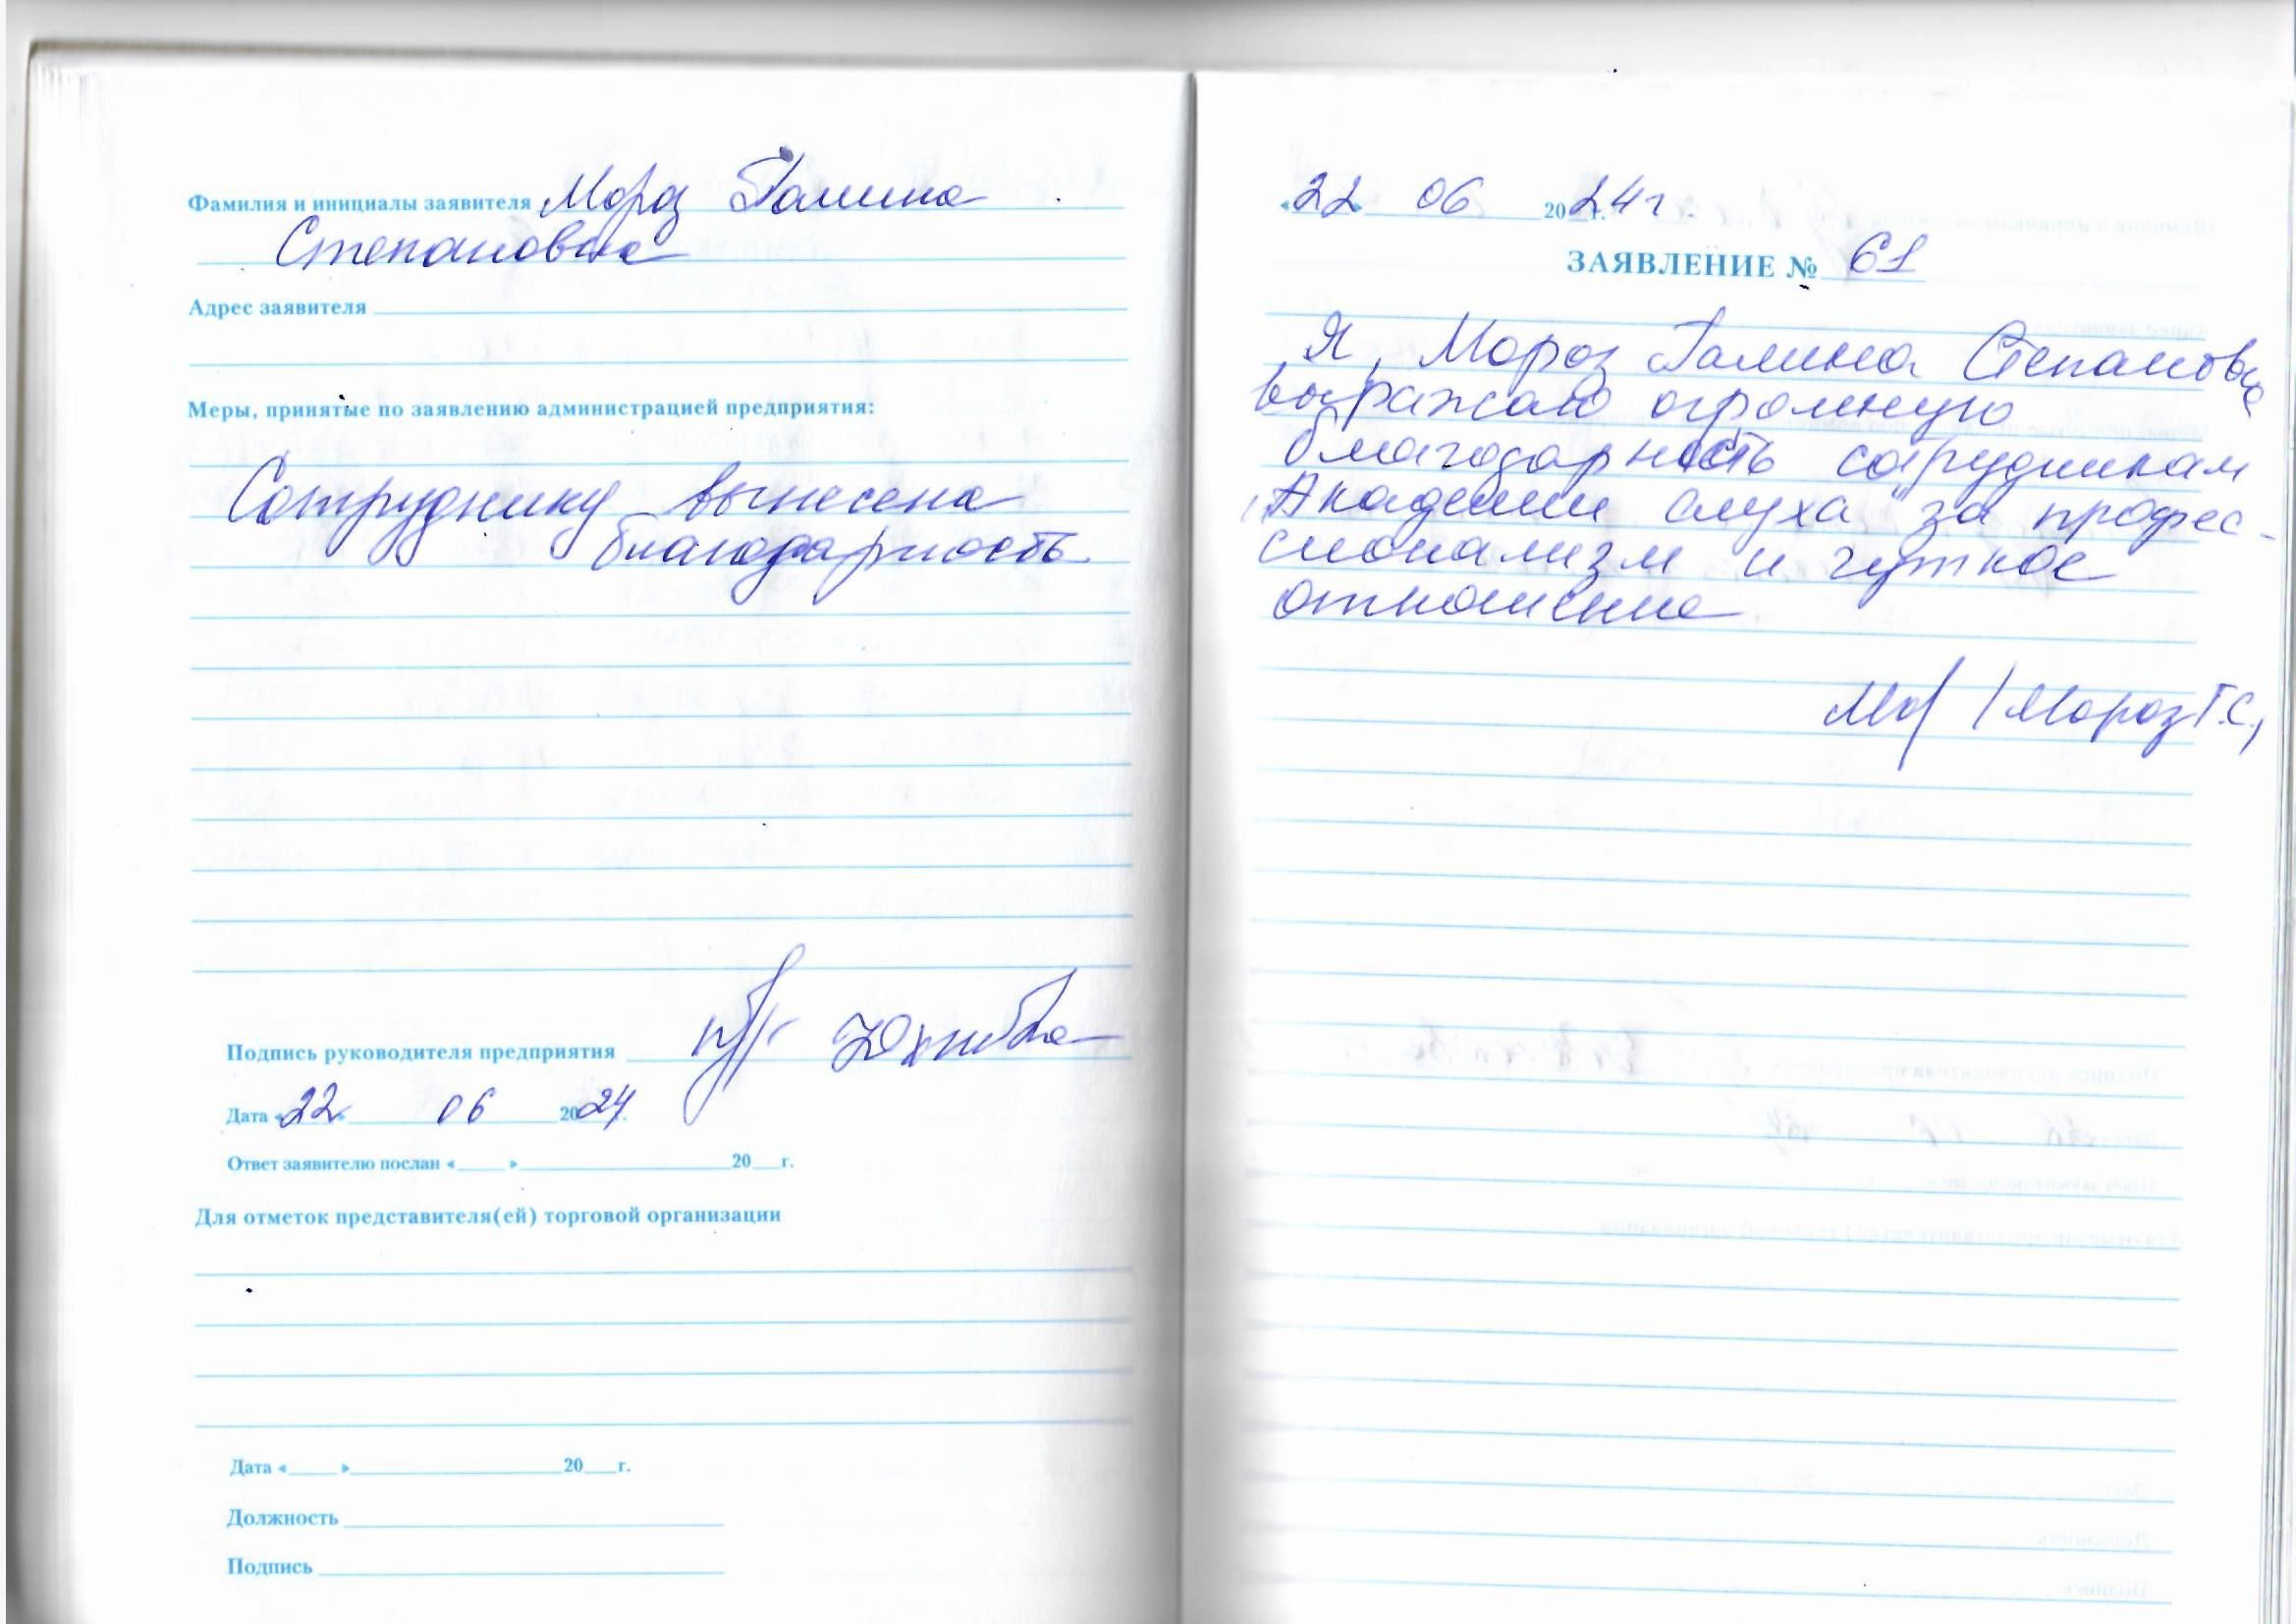 Фамилия и инициалы заявителя Мороз Галина
Степановна
Адрес заявителя
Меры, принятые по заявлению администрацией предприятия:
Сотруднику вынесена
благодарность
Подпись руководителя предприятия
Дата «22» 06 2024 г.
Ответ заявителю послан «____» ____ 20__г.
Для отметок представителя(ей) торговой организации
Дата «____» ____ 20__г.
Должность
Подпись
«22» 06 2024г.
ЗАЯВЛЕНИЕ № 61
Я, Мороз Галина Степановна
выражаю огромную
благодарность сотрудникам
"Академии слуха" за профес-
сионализм и чуткое
отношение
/Мороз Г.С./